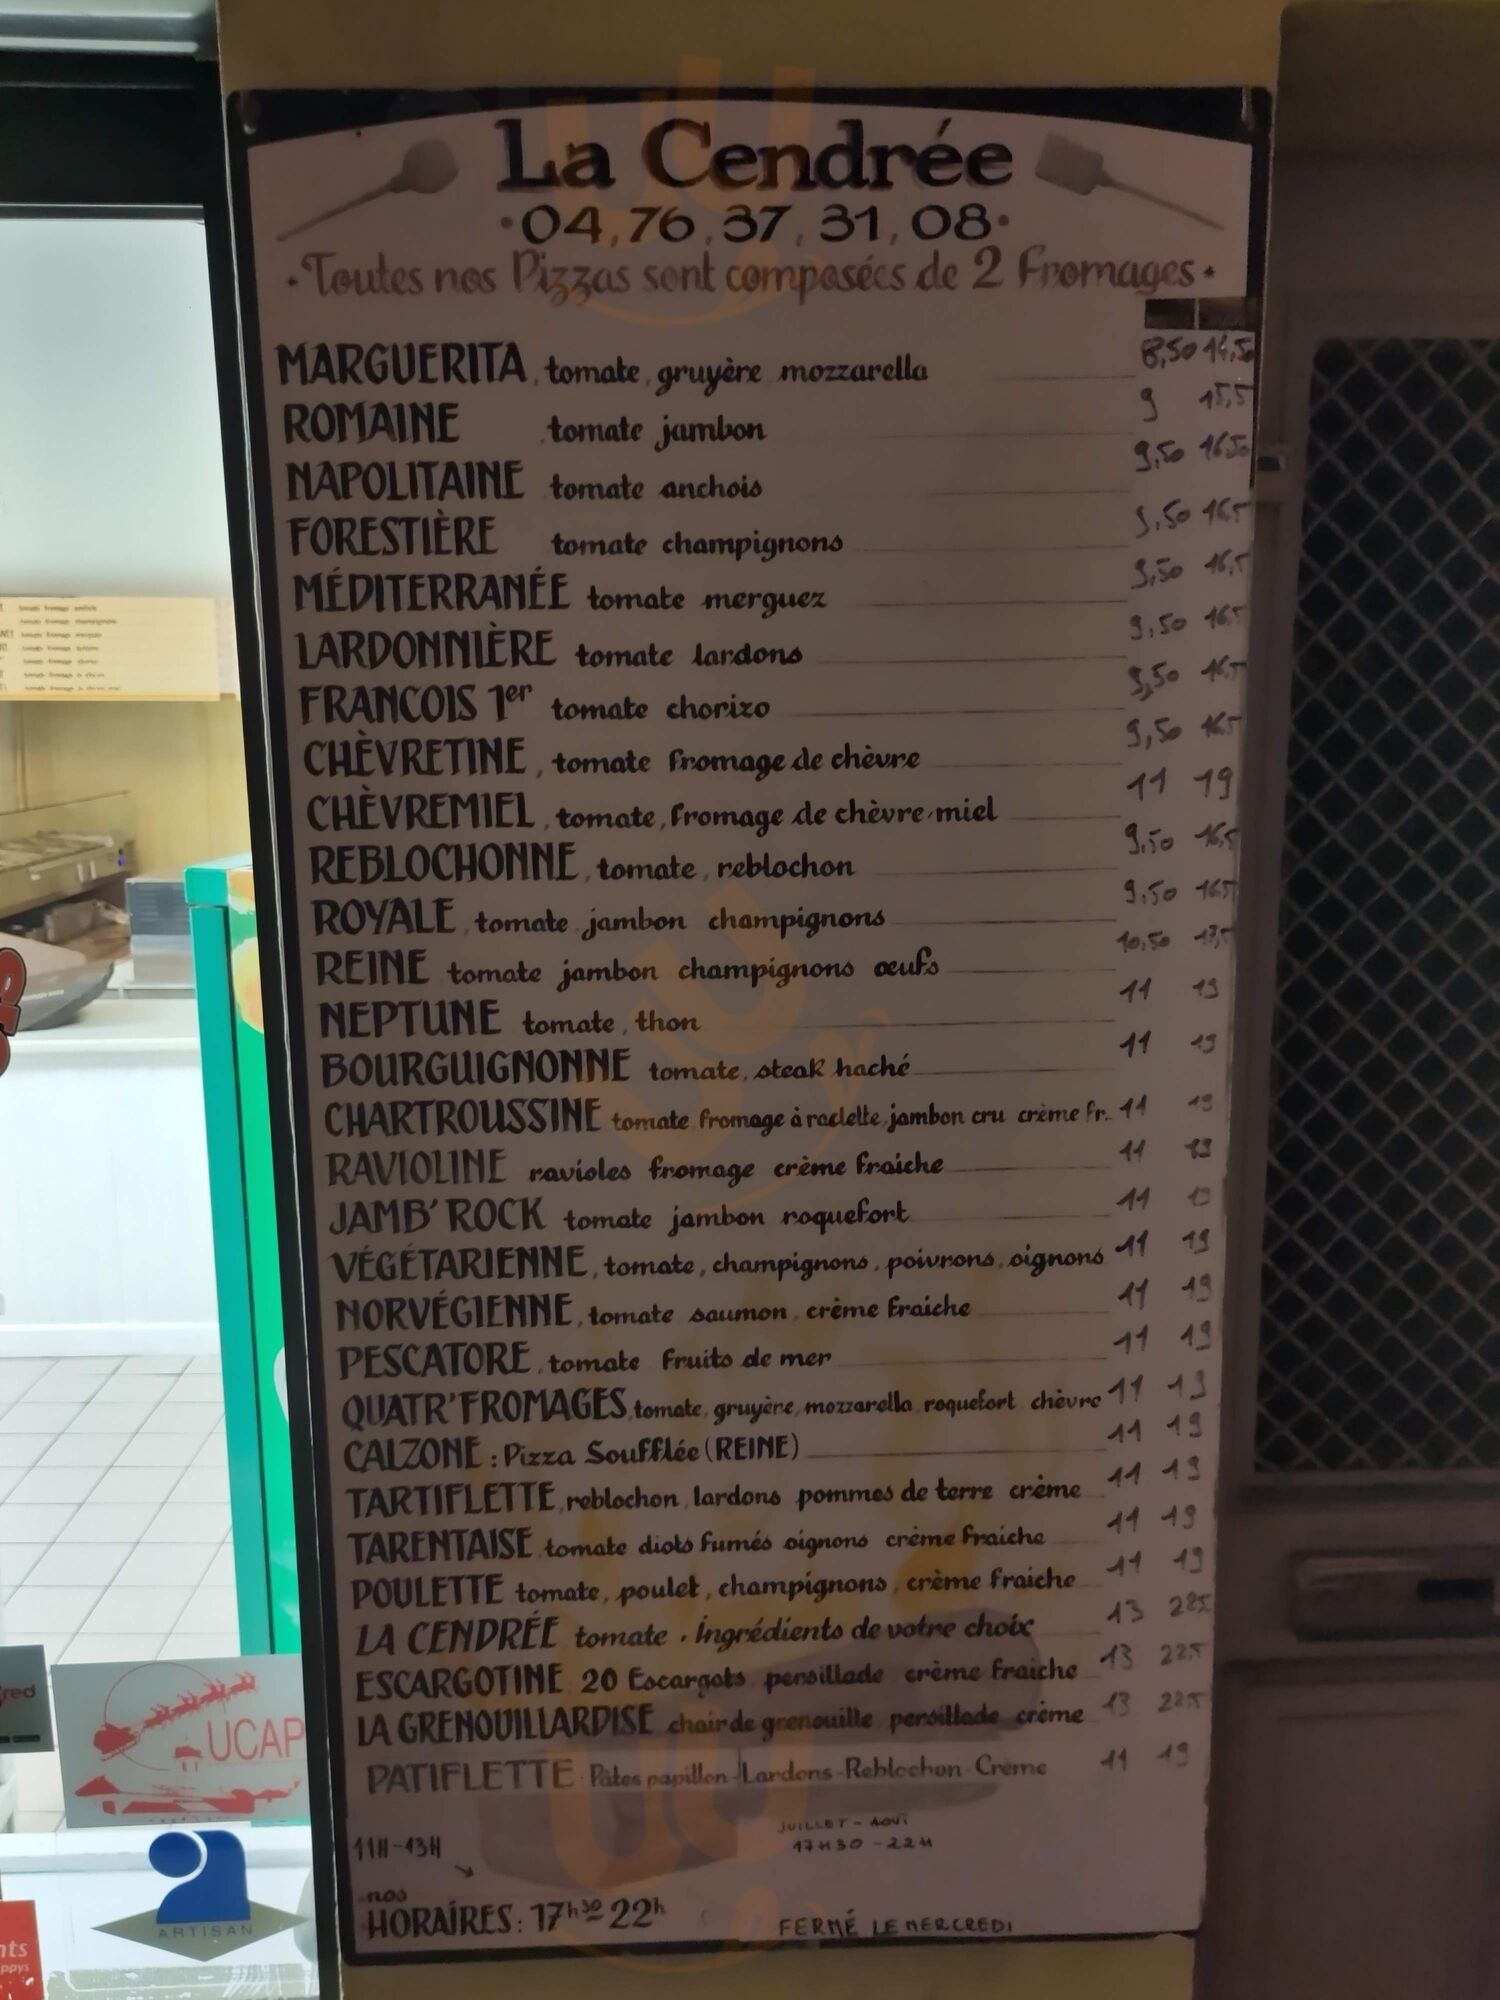 La Cendrée
·04,76,37,31,08·
·Toutes nos Pizzas sont composées de 2 Fromages·
MARGUERITA, tomate, gruyère mozzarella 8,50 14,50
ROMAINE tomate jambon 9 15,5
NAPOLITAINE tomate anchois 9,50 16,50
FORESTIÈRE tomate champignons 9,50 16,5
MÉDITERRANÉE tomate merguez 9,50 16,5
LARDONNIÈRE tomate lardons 9,50 16,5
FRANCOIS 1er tomate chorizo 9,50 16,5
CHÈVRETINE, tomate fromage de chèvre 9,50 16,5
CHÈVREMIEL, tomate, fromage de chèvre, miel 11 19
REBLOCHONNE, tomate, reblochon 9,50 16,5
ROYALE, tomate jambon champignons 9,50 16,5
REINE tomate jambon champignons œufs 10,50
NEPTUNE tomate, thon 11 19
BOURGUIGNONNE tomate, steak haché 11 19
CHARTROUSSINE tomate fromage à raclette, jambon cru crème fr. 11 19
RAVIOLINE ravioles fromage crème fraiche 11 19
JAMB'ROCK tomate jambon roquefort 11 19
VÉGÉTARIENNE, tomate, champignons, poivrons, oignons 11 19
NORVÉGIENNE, tomate saumon, crème fraiche 11 19
PESCATORE, tomate fruits de mer 11 19
QUATR'FROMAGES, tomate, gruyère, mozzarella, roquefort chèvre 11 19
CALZONE : Pizza Soufflée (REINE) 11 19
TARTIFLETTE, reblochon, lardons pommes de terre crème 11 19
TARENTAISE, tomate diots fumés oignons crème fraiche 11 19
POULETTE tomate, poulet, champignons, crème fraiche 11 19
LA CENDRÉE tomate . Ingrédients de votre choix 13 22,5
ESCARGOTINE 20 Escargots persillade crème fraiche 13 22,5
LA GRENOUILLARDISE chair de grenouille persillade crème 13 22,5
PATIFLETTE Pâtes papillon-Lardons-Reblochon-Crème 11 19
11H-13H
JUILLET - AOUT
17H30 - 22H
nos
HORAIRES: 17h30 22h
FERMÉ LE MERCREDI
UCAP
ARTISAN
red
nts
ppys